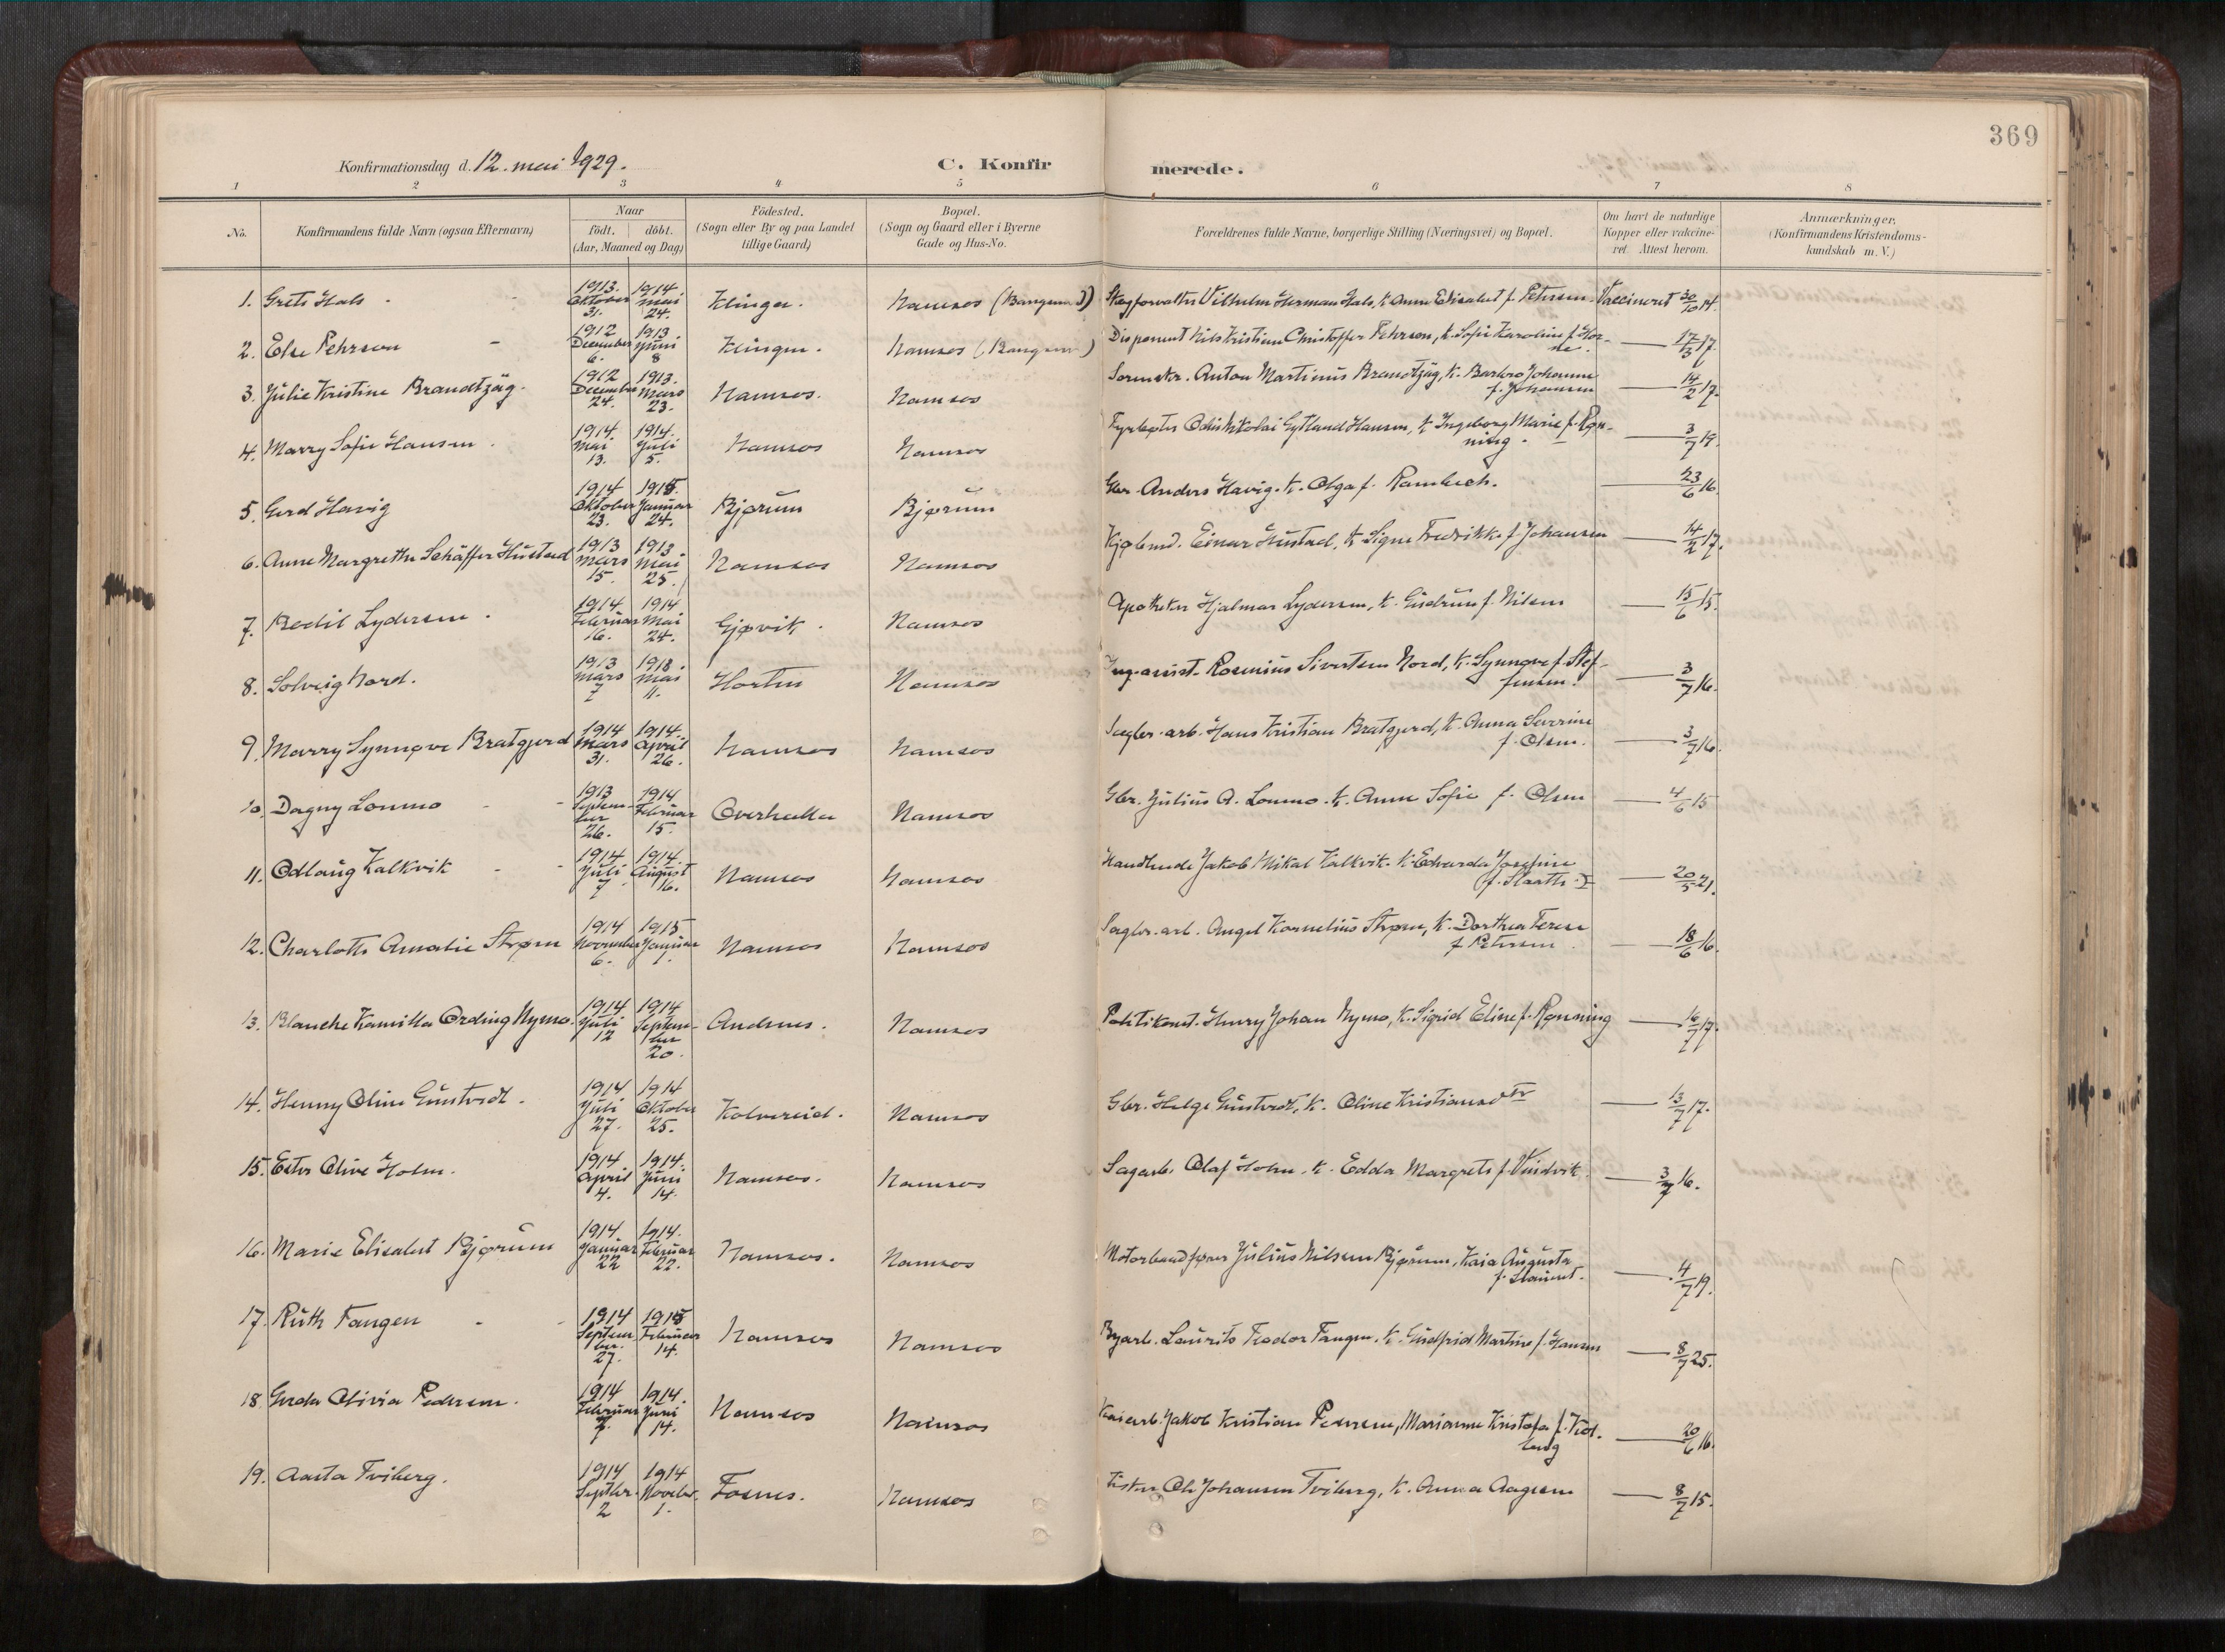 369
Konfirmationsdag d. 12. mai 1929.
C. Konfirmerede.
1 2 3 4 5 6 7 8
No.
Konfirmandens fulde Navn (ogsaa Efternavn)
Naar
födt. döbt.
(Aar, Maaned og Dag)
Födested.
(Sogn eller By og paa Landet
tillige Gaard)
Bopæl.
(Sogn og Gaard eller i Byerne
Gade og Hus-No.
Forældrenes fulde Navne, borgerlige Stilling (Næringsvei) og Bopæl.
Om havt de naturlige
Kopper eller vakcine-
ret. Attest herom.
Anmærkninger,
(Konfirmandens Kristendoms-
kundskab m. V.)
1. Grete Hals 1913. Oktober 31. 1914 Mai 24. Klinga. Namsos Vilhelm Herman Hals, k. Anna Elisabet f. Pehrson. Vaccineret 30/10 14.
2. Else Pehrson 1912 December 6. 1913 Juni 8 Klinga. Namsos Disponent Nils Kristian Christoffer Pehrson, k. Sofie Karoline 17/3 17.
3. Julie Kristine Brandtzäg 1912 December 24. 1913. Mars 23. Namsos. Namsos Anton Martinus Brandtzäg, k. Barbro Johanna
f. Johansen 14/2 17.
4. Marry Sofie Hansen 1914. Mai 13. 1914. Juli 5. Namsos Namsos Fyrbøter Hansen, k. Ingeborg Marie f. Røn-
ning. 3/7 19.
5. Gerd Havig 1914 Oktober 23. 1915. Januar 24. Bjørum Bjørum Gbr. Anders Havig. k. Olga f. Rambech. 23/6 16.
6. Anne Margrethe Schäffer Hustad 1913 Mars 15. 1913 Mai 25. Namsos Namsos Kjøbmd. Einar Hustad, k. Signe Fredrikke f. Johansen 14/2 17.
7. Bodil Lydersen. 1914. Februar 16. 1914 Mai 24. Gjøvik. Namsos Apotheker Hjalmar Lydersen, k. Gudrun f. Nilsen 15/6 15.
8. Solveig Nord. 1913 Mars 7 1913. Mai 11. Horten Namsos Rosenius Sivertsen Nord, k. Synnøve f. Stef-
fensen. 3/7 16.
9. Marry Synnøve Bratgjerd 1914 Mars 31. 1914. April 26. Namsos Namsos Hans Kristian Bratgjerd, k. Anna Severine
f. Olsen. 3/7 16.
10. Dagny Lommo 1913 September 26. 1914 Februar 15. Overhalla Namsos Gbr. Julius A. Lommo. k. Anne Sofie f. Olsen 4/6 15
11. Odlaug Kalkvik 1914 Juli 7 1914. August 16. Namsos Namsos Handlende Jakob Mikal Kalkvik. k. Edvarda Josefine 20/5 21.
12. Charlotte Amalie Strøm 1914 November 6. 1915 Januar 1. Namsos Namsos Angel Kornelius Strøm, k. Dorthea
f. Petersen 18/6 16.
13. Blanche Kamilla Ording Nymo. 1914 Juli 12 1914 September 20. Andenes. Namsos Politikonst. Henry Johan Nymo, k. Sigrid Eline f. Rønning 16/7 17.
14. Henny Oline Gunstvedt. 1914. Juli 27. 1914 Oktober 25. Kolvereid. Namsos Gbr. Helge Gunstvedt, k. Oline Kristiansdtr 13/7 17.
15. Ester Olive Holm. 1914 April 4. 1914. Juni 14. Namsos. Namsos Sagarb. Olaf Holm. k. Edda Margrete f. Vindvik. 3/7 16.
16. Marie Elisabet Bjørum 1914. Januar 22 1914. Februar 22. Namsos. Namsos Julius Nilsen Bjørum, Kaia Augusta 4/7 19.
17. Ruth Fangen 1914 September. 27. 1915 Februar 14. Namsos Namsos Byarb. Laurits Teodor Fangen. k. Gudfrid Martine f. Hansen 8/7 25.
18. Gerda Olivia Pedersen. 1914 Februar 7. 1914. Juni 14. Namsos Namsos Kaiarb. Jakob Kristian Pedersen, Marianne 20/6 16.
19. Aasta Tviberg. 1914 Septbr. 2 1914 Novebr. 1. Fosnes. Namsos Fisker Ole Johansen Tviberg, k. Anna Aagesen 8/7 15.